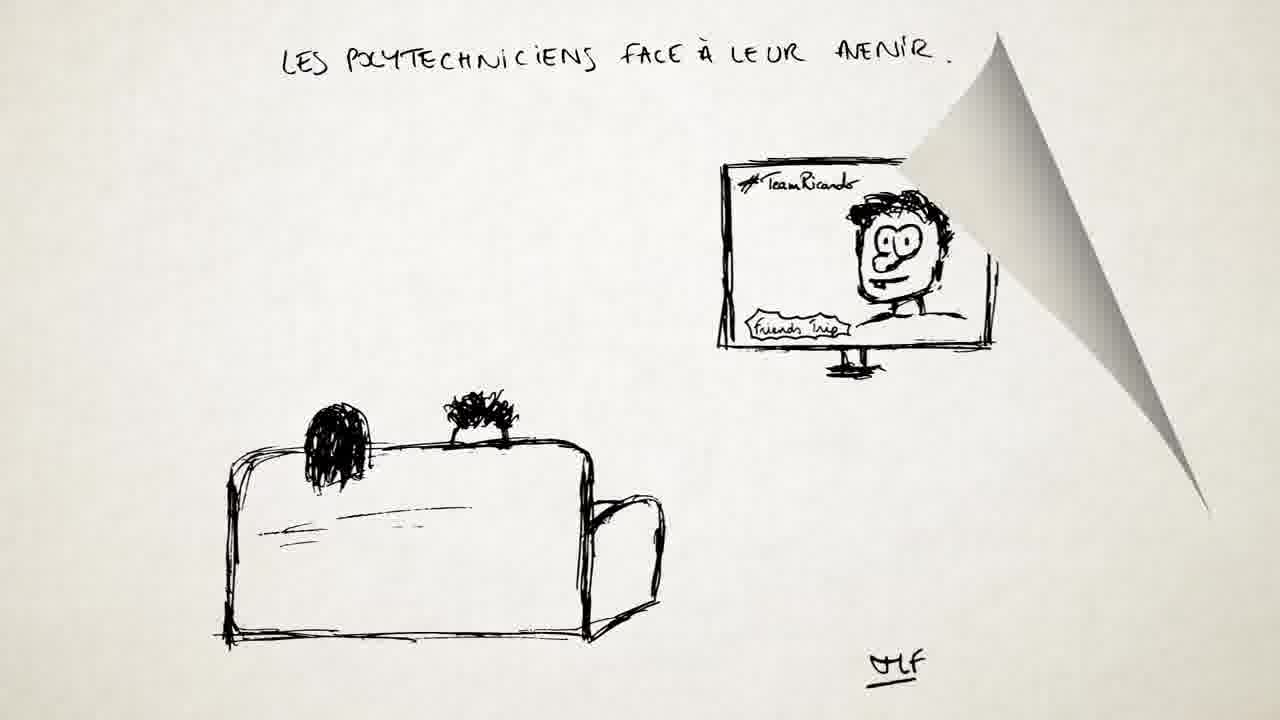 LES POLYTECHNICIENS FACE À LEUR AVENIR.
#TeamRicardo
Friends Trip
JMF